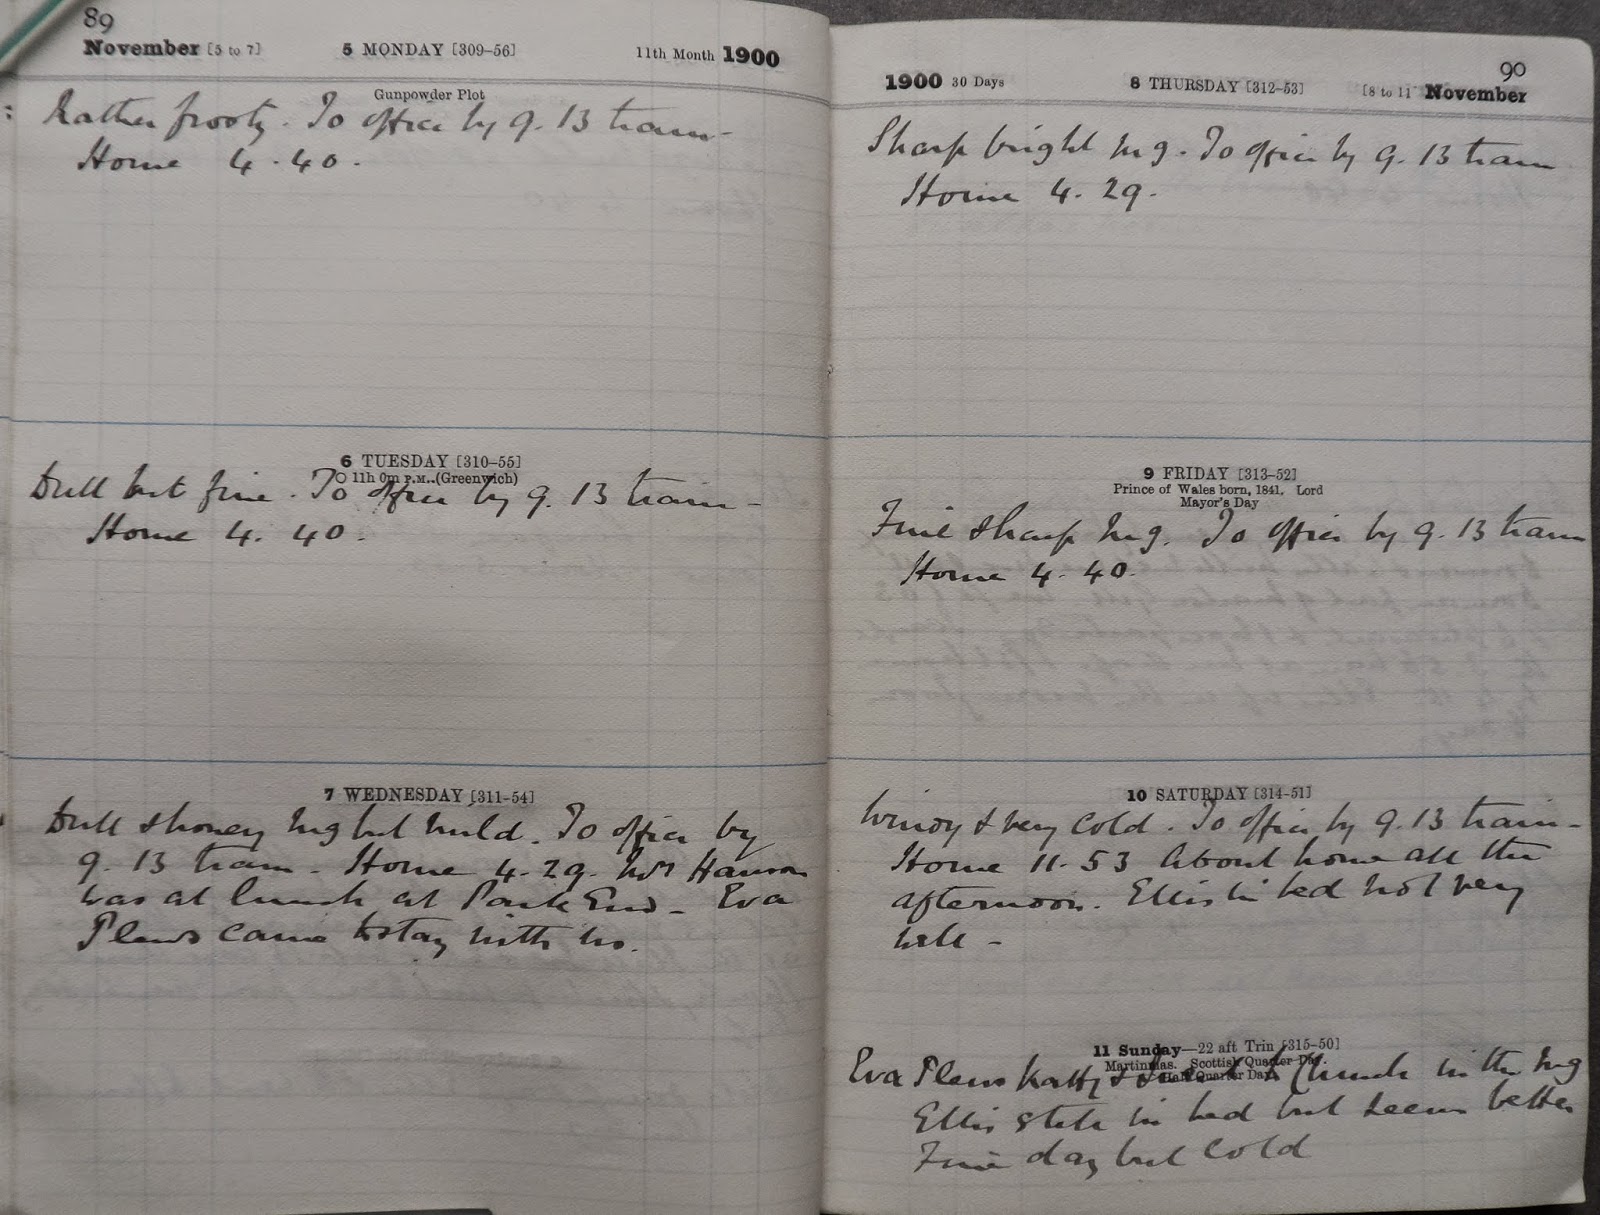 89
November [5 to 7] 5 MONDAY [309–56] 11th Month 1900
Gunpowder Plot
Rather frosty. To office by 9.13 tram–
Home 4.40.
6 TUESDAY [310–55]
11h 0m P.M. (Greenwich)
Dull but fine. To office by 9.13 tram–
Home 4.40.
7 WEDNESDAY [311–54]
Dull & stoney mg but mild. To office by
9.13 tram. Home 4.29. Mrs Hanson
was at lunch at Park End – Eva
Plews came to stay with us.
90
1900 30 Days 8 THURSDAY [312–53] [8 to 11 November
Sharp bright mg. To office by 9.13 tram
Home 4.29.
9 FRIDAY [313–52]
Prince of Wales born, 1841. Lord
Mayor's Day
Fine sharp mg. To office by 9.13 tram
Home 4.40.
10 SATURDAY [314–51]
Windy & very cold. To office by 9.13 tram–
Home 11.53 About home all the
afternoon. Ellis in bed not very
well –
11 Sunday—22 aft Trin [315–50]
Martinmas. Scottish Quarter Day.
Half Quarter Day
Eva Plews Katty & to Church in the mg
Ellis still in bed but seems better
Fine day but cold